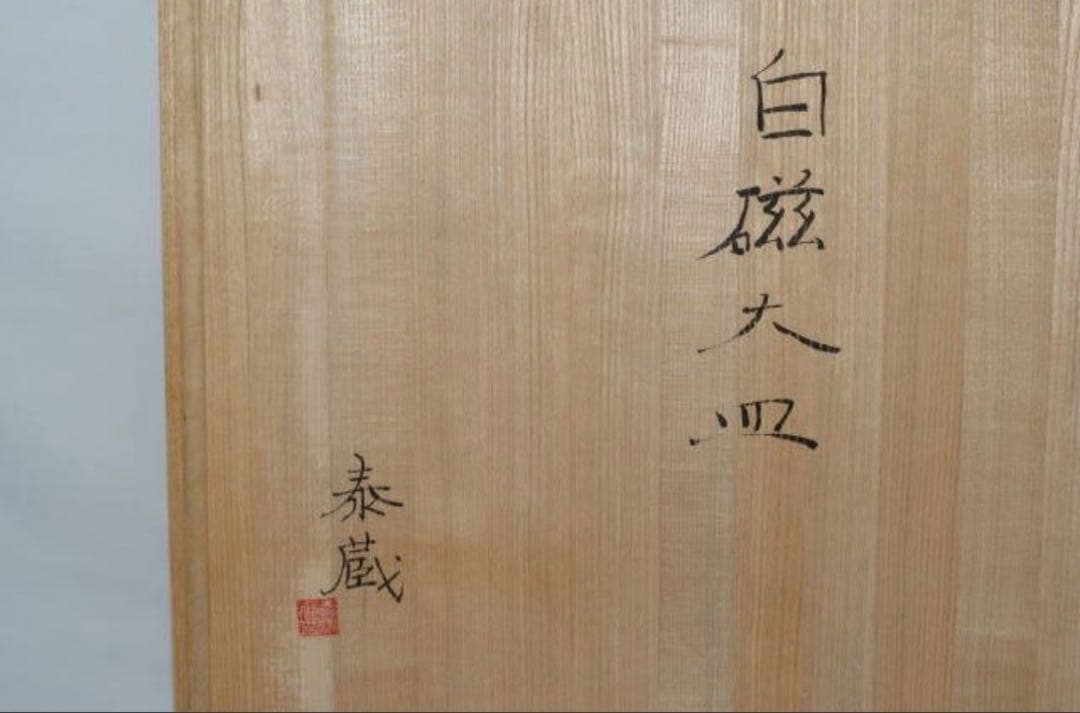 白磁大皿
泰蔵